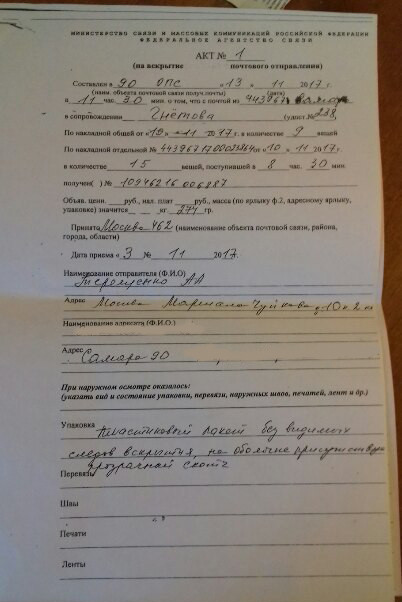 МИНИСТЕРСТВО СВЯЗИ И МАССОВЫХ КОММУНИКАЦИЙ РОССИЙСКОЙ ФЕДЕРАЦИИ
ФЕДЕРАЛЬНОЕ АГЕНТСТВО СВЯЗИ
АКТ № 1
(на вскрытие почтового отправления)
Составлен в 90 ОПС «13 » 11 2017 г.
(наим. объекта почтовой связи получ.почты) (дата)
в 11 час. 30 мин. о том, что с почтой из 443967
в сопровождении Гнётова (удост.№ 238,
По накладной общей от 13 11 2017 г. в количестве 9 вещей
По накладной отдельной № от «10 » 11 2017 г.
в количестве 15 вещей, поступившей в 8 час. 30 мин.
получен( ) № 10946216006887
Объяв. цени руб., нал. плат руб., масса (по ярлыку ф.2, адресному ярлыку,
упаковке) значится кг 274 гр.
Принята Москва 462 (наименование объекта почтовой связи, района,
города, области)
Дата приема « 3 № 11 2017.
Наименование отправителя (Ф.И.О)
АА
Адрес Москва Маршала Чуйкова
Наименование адресата (Ф.И.О.)
Адрес Самара 90 , ,
При наружном осмотре оказалось:
(указать ещё и состояние упаковки, перевязи, наружных швов, печатей, лент и др.)
Упаковка пластиковый пакет без видимых
следов вскрытия, на оболочке присутствует
Перевязь прозрачный скотч
Швы
Печати
Ленты